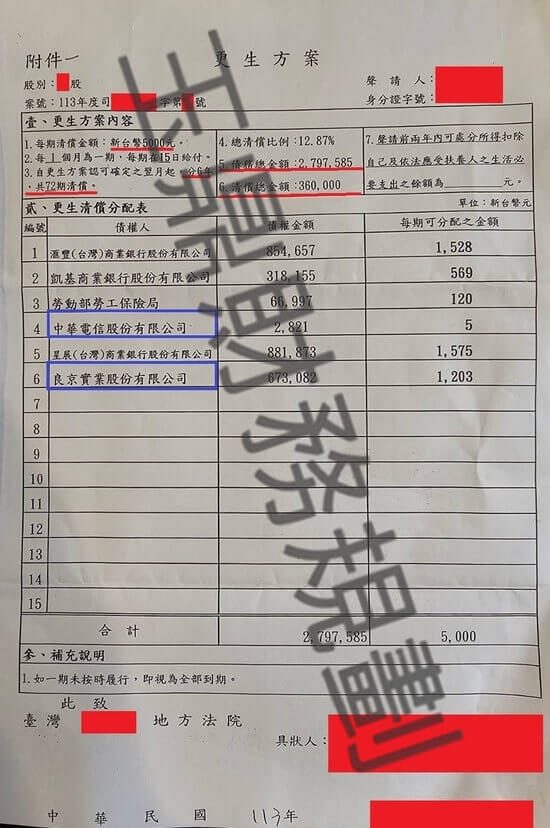 附件一
更生方案
股別： 股
聲請人：
案號：113年度司 字第 號
身分證字號：
壹、更生方案內容
1.每期清償金額：新台幣5000元。
2.每 1個月為一期，每期在15日給付。
3.自更生方案認可確定之翌月起，分6年
，共72期清償。
4.總清償比例：12.87%
5.債務總金額：2,797,585
6.清償總金額：360,000
7.聲請前兩年內可處分所得扣除
自己及依法應受扶養人之生活必
要支出之餘額為 元。
貳、更生清償分配表
單位：新台幣元
編號 債權人 債權金額 每期可分配之金額
1 滙豐(台灣)商業銀行股份有限公司 854,657 1,528
2 凱基商業銀行股份有限公司 318,155 569
3 勞動部勞工保險局 66,997 120
4 中華電信股份有限公司 2,821 5
5 星展(台灣)商業銀行股份有限公司 881,873 1,575
6 良京實業股份有限公司 673,082 1,203
7
8
9
10
11
12
13
14
15
合計 2,797,585 5,000
參、補充說明
1.如一期未按時履行，即視為全部到期。
此致
臺灣 地方法院
具狀人：
中華民國 113年
玉鼎財務規劃